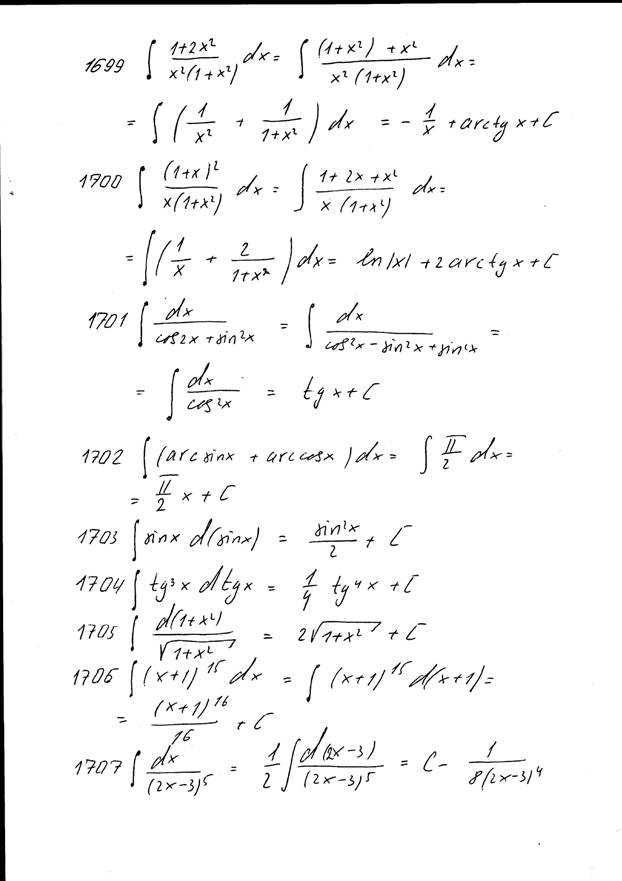 1699 ∫ (1+2x²)/(x²(1+x²)) dx = ∫ ((1+x²)+x²)/(x²(1+x²)) dx =
= ∫ (1/x² + 1/(1+x²)) dx = - 1/x + arctg x + C
1700 ∫ (1+x)²/(x(1+x²)) dx = ∫ (1+2x+x²)/(x(1+x²)) dx =
= ∫ (1/x + 2/(1+x²)) dx = ln|x| + 2 arctg x + C
1701 ∫ dx/(cos2x + sin²x) = ∫ dx/(cos²x - sin²x + sin²x) =
= ∫ dx/cos²x = tg x + C
1702 ∫ (arcsinx + arccosx) dx = ∫ π/2 dx =
= π/2 x + C
1703 ∫ sinx d(sinx) = sin²x/2 + C
1704 ∫ tg³x dtgx = 1/4 tg⁴x + C
1705 ∫ d(1+x²)/√(1+x²) = 2√(1+x²) + C
1706 ∫ (x+1)¹⁵ dx = ∫ (x+1)¹⁵ d(x+1) =
= (x+1)¹⁶/16 + C
1707 ∫ dx/(2x-3)⁵ = 1/2 ∫ d(2x-3)/(2x-3)⁵ = C - 1/(8(2x-3)⁴)